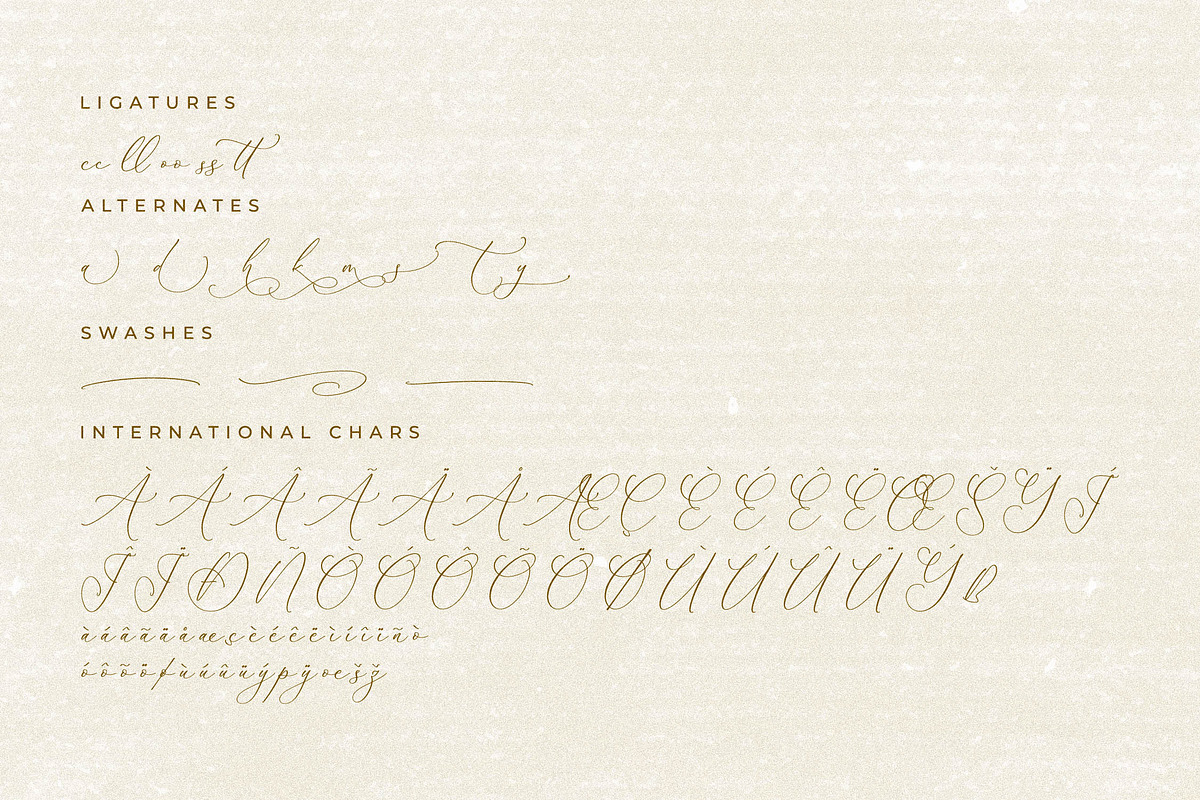 LIGATURES
cc ll oo ss tt
ALTERNATES
a d h k m s t y
SWASHES
INTERNATIONAL CHARS
À Á Â Ã Ä Å Æ Ç È É Ê Ë Œ Š Ÿ Í
Î Ï Ð Ñ Ò Ó Ô Õ Ö Ø Ù Ú Û Ü Ý ß
à á â ã ä å æ ç è é ê ë ì í î ï ñ ò
ó ô õ ö ø ù ú û ü ý þ ÿ œ š ž